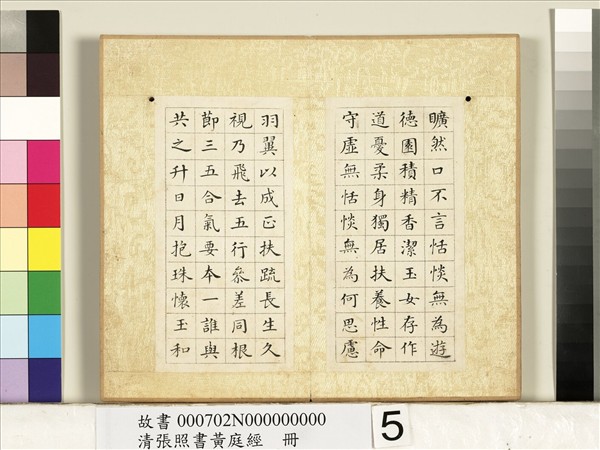 曠然口不言恬惔無為遊
德園積精香潔玉女存作
道憂柔身獨居扶養性命
守虛無恬惔無為何思慮
羽翼以成正扶疏長生久
視乃飛去五行叅差同根
節三五合氣要夲一誰與
共之升日月抱珠懷玉和
故書 000702N000000000
清張照書黃庭經 冊
5